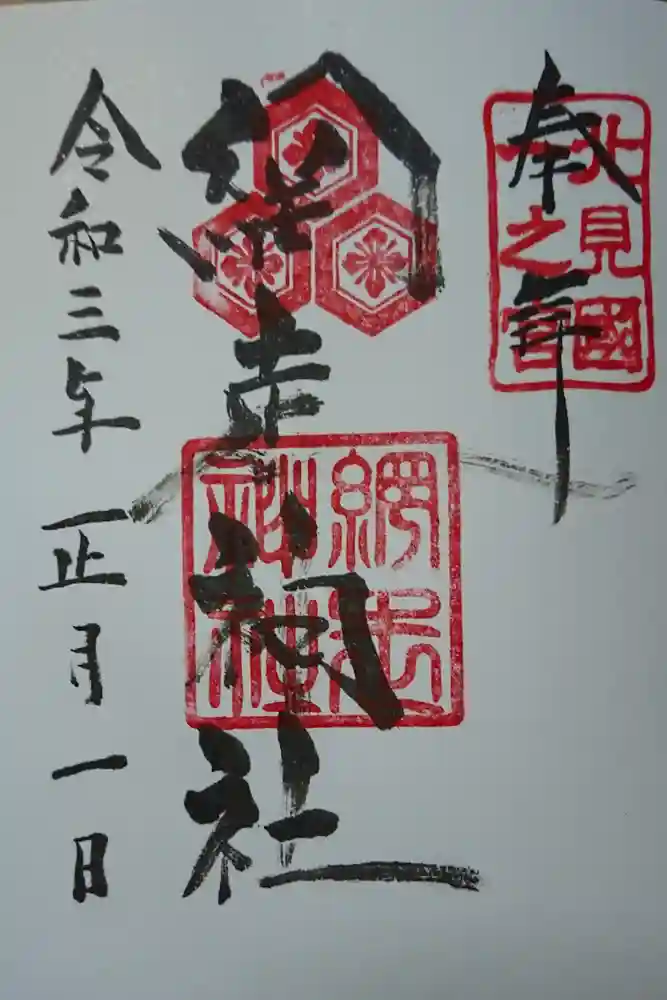 奉拝
北見國
一之宮
網走神社
網走
神社
令和三年 正月一日